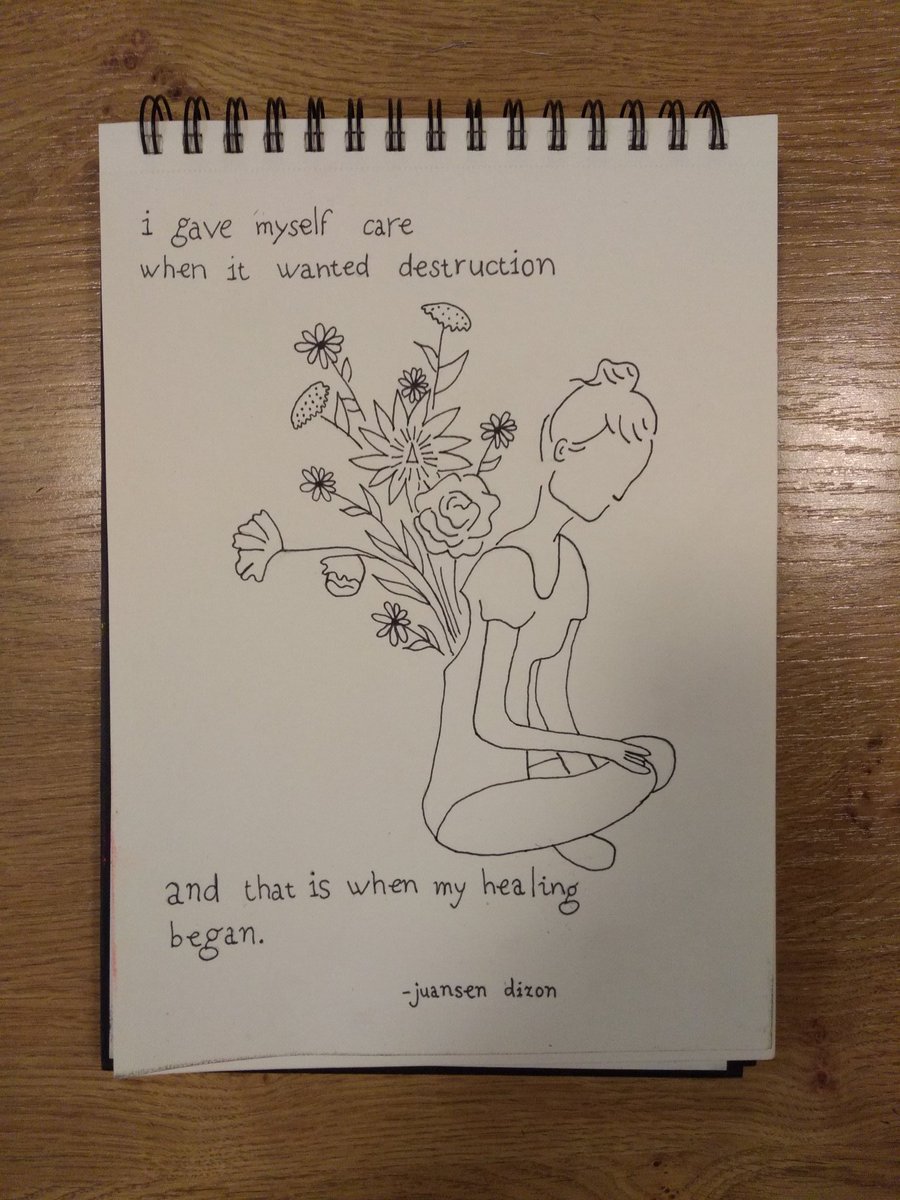 i gave myself care
when it wanted destruction
and that is when my healing
began.
-juansen dizon